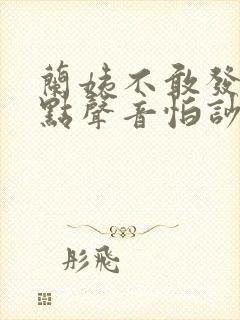 蘭姨不敢發
點聲音怕訬
彤飛